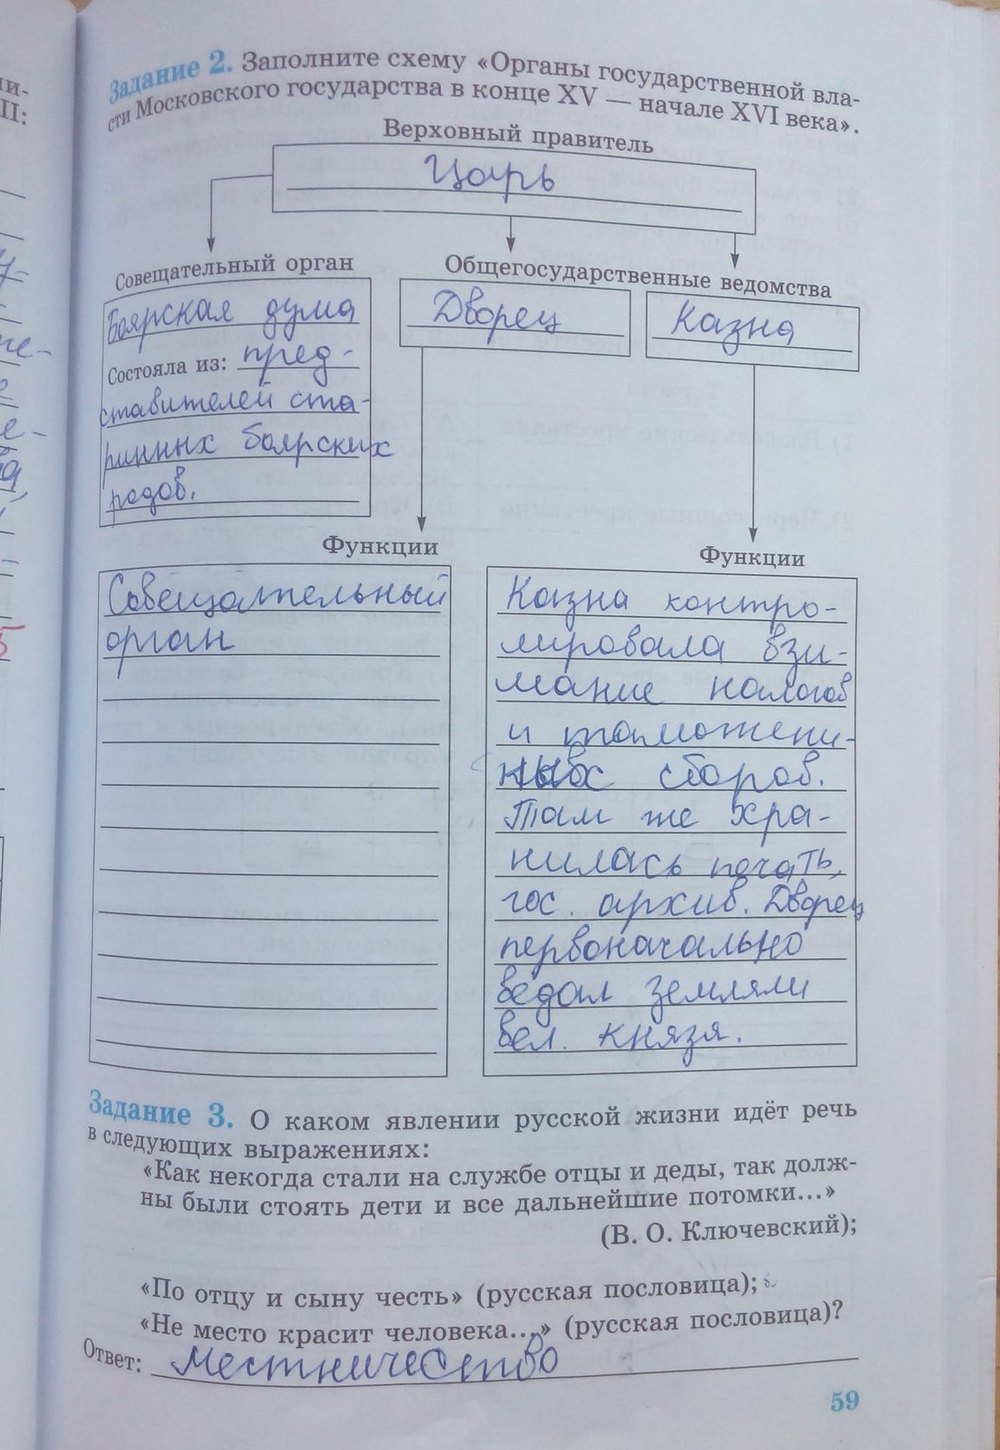 ли-
II:
Задание 2. Заполните схему «Органы государственной вла-
сти Московского государства в конце XV — начале XVI века».
Верховный правитель
Царь
Совещательный орган
Боярская дума
Состояла из: пред-
ставителей ста-
ринных боярских
родов.
Общегосударственные ведомства
Дворец
Казна
Функции
Совещательный
орган
Функции
Казна контро-
лировала взи-
мание налогов
и таможен-
ных сборов.
Там же хра-
нилась печать,
гос. архив. Дворец
первоначально
ведал землями
вел. князя.
Задание 3. О каком явлении русской жизни идёт речь
в следующих выражениях:
«Как некогда стали на службе отцы и деды, так долж-
ны были стоять дети и все дальнейшие потомки...»
(В. О. Ключевский);
«По отцу и сыну честь» (русская пословица);
«Не место красит человека...» (русская пословица)?
Ответ: Местничество
59